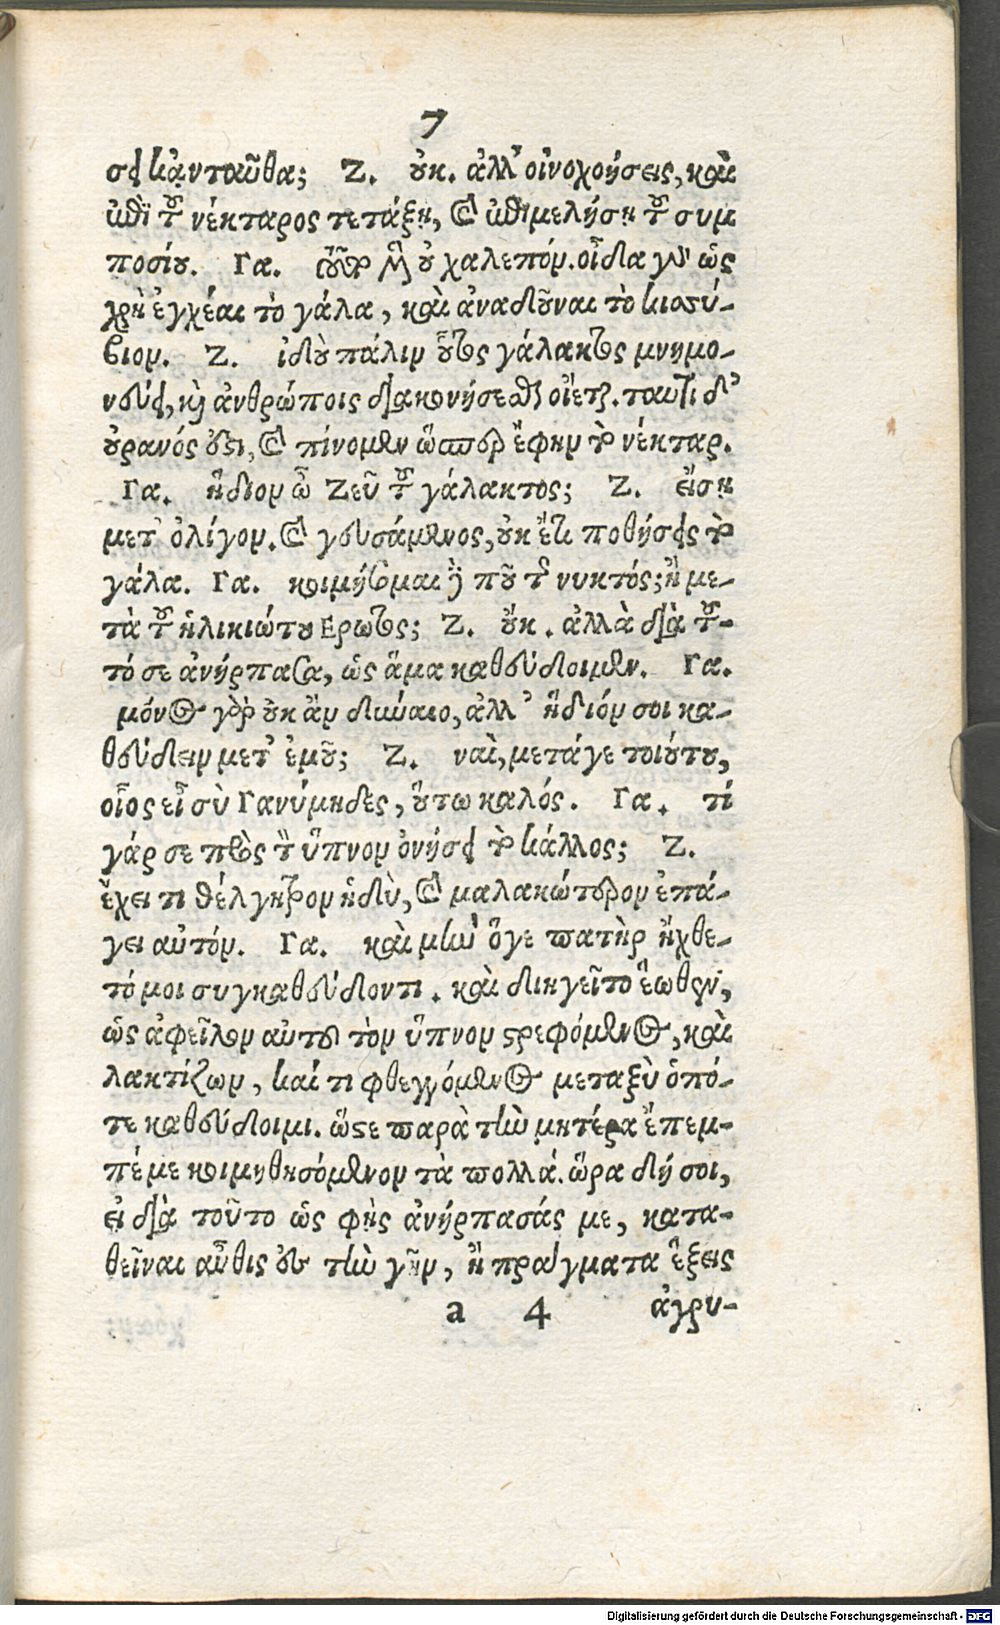 7
σει κἀνταῦθα; Ζ. οὐκ. ἀλλ' οἰνοχοήσεις, καὶ
ἐπὶ τοῦ νέκταρος τετάξῃ, καὶ ἐπιμελήσῃ τοῦ συμ
ποσίου. Γα. τοῦτο μὲν οὐ χαλεπόν. οἶδα γὰρ ὡς
χρὴ ἐγχέαι τὸ γάλα, καὶ ἀναδοῦναι τὸ κισσύ-
βιον. Ζ. ἰδοὺ πάλιν οὗτος γάλακτος μνημο-
νεύει, καὶ ἀνθρώποις διακονήσεσθαι οἴεται. ταυτὶ δ'
οὐρανός ἐστι, καὶ πίνομεν ὥσπερ ἔφην τὸ νέκταρ.
Γα. ἥδιον ὦ Ζεῦ τοῦ γάλακτος; Ζ. εἴσῃ
μετ' ὀλίγον. καὶ γευσάμενος, οὐκ ἔτι ποθήσεις τὸ
γάλα. Γα. κοιμήσομαι δὲ ποῦ τῆς νυκτός; ἢ με-
τὰ τοῦ ἡλικιώτου Ερωτος; Ζ. οὔκ. ἀλλὰ διὰ τοῦ-
τό σε ἀνήρπασα, ὡς ἅμα καθεύδοιμεν. Γα.
μόνος γὰρ οὐκ ἂν δύναιο, ἀλλ' ἥδιόν σοι κα-
θεύδειν μετ' ἐμοῦ; Ζ. ναὶ, μετάγε τοιούτου,
οἷος εἶ σὺ Γανύμηδες, οὕτω καλός. Γα. τί
γάρ σε πρὸς τὸν ὕπνον ὀνήσει τὸ κάλλος; Ζ.
ἔχει τι θέλγητρον ἡδὺ, καὶ μαλακώτερον ἐπά-
γει αὐτόν. Γα. καὶ μὴν ὅγε πατὴρ ἤχθε-
τό μοι συγκαθεύδοντι. καὶ διηγεῖτο ἕωθεν,
ὡς ἀφεῖλον αὐτοῦ τὸν ὕπνον στρεφόμενος, καὶ
λακτίζων, καί τι φθεγγόμενος μεταξὺ ὁπό-
τε καθεύδοιμι. ὥστε παρὰ τὴν μητέρα ἔπεμ-
πέ με κοιμηθησόμενον τὰ πολλά. ὥρα δή σοι,
εἰ διὰ τοῦτο ὡς φῂς ἀνήρπασάς με, κατα-
θεῖναι αὖθις εἰς τὴν γῆν, ἢ πράγματα ἕξεις
a 4 ἀγρυ-
Digitalisierung gefördert durch die Deutsche Forschungsgemeinschaft - DFG